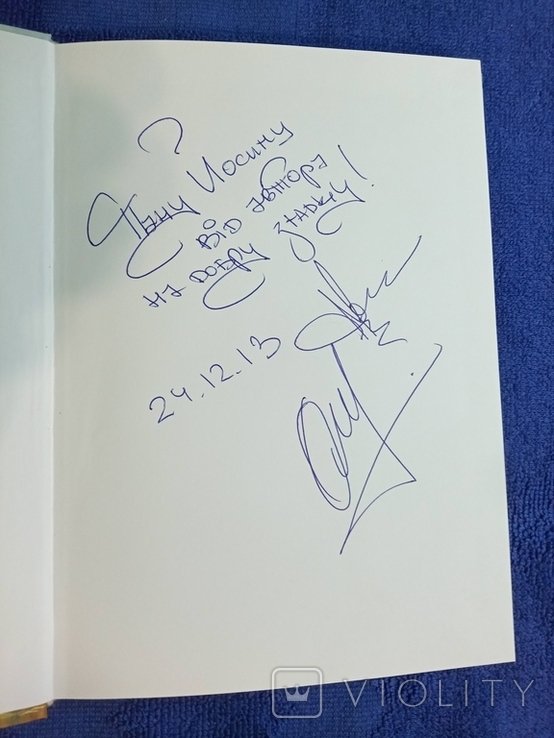 Пану Йосипу
від автора
на добру згадку!
24.12.13
VIOLITY